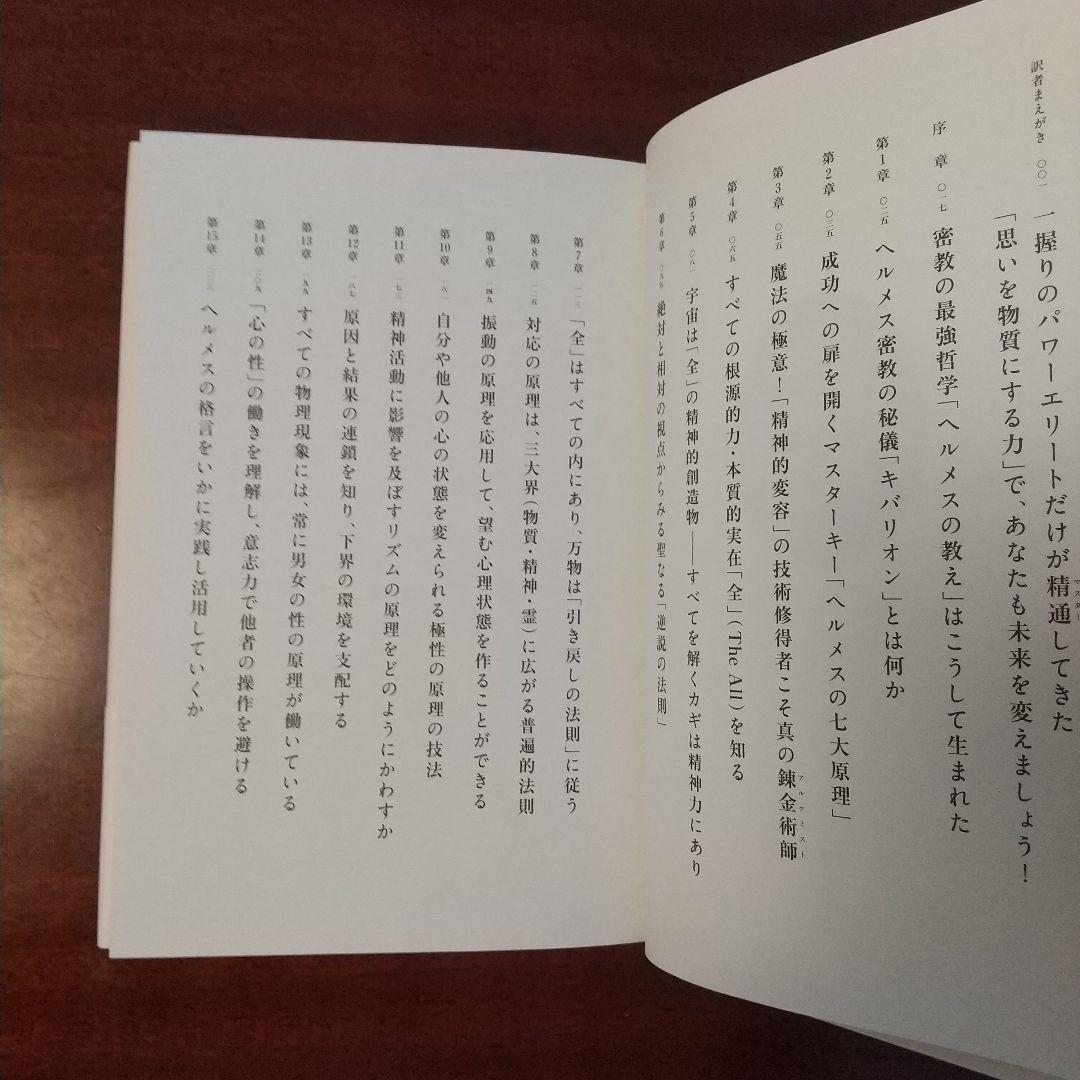 訳者まえがき 〇〇一 一握りのパワーエリートだけが精通してきた
マスター
「思いを物質にする力」で、あなたも未来を変えましょう！
序 章 〇一七 密教の最強哲学「ヘルメスの教え」はこうして生まれた
第1章 〇二五 ヘルメス密教の秘儀「キバリオン」とは何か
第2章 〇三五 成功への扉を開くマスターキー「ヘルメスの七大原理」
第3章 〇五五 魔法の極意！「精神的変容」の技術修得者こそ真の錬金術師
アルケミスト
第4章 〇六五 すべての根源的力・本質的実在「全」(The All)を知る
第5章 〇八一 宇宙は「全」の精神的創造物――すべてを解くカギは精神力にあり
第6章 絶対と相対の視点からみる聖なる「逆説の法則」
第7章 「全」はすべての内にあり、万物は「引き戻しの法則」に従う
第8章 一二五 対応の原理は、三大界（物質・精神・霊）に広がる普遍的法則
第9章 一四九 振動の原理を応用して、望む心理状態を作ることができる
第10章 一六一 自分や他人の心の状態を変えられる極性の原理の技法
第11章 一七三 精神活動に影響を及ぼすリズムの原理をどのようにかわすか
第12章 一八七 原因と結果の連鎖を知り、下界の環境を支配する
第13章 一九九 すべての物理現象には 常に男女の性の原理が働いている
第14章 二〇九 「心の性」の働きを理解し、意志力で他者の操作を避ける
第15章 ヘルメスの格言をいかに実践し活用していくか